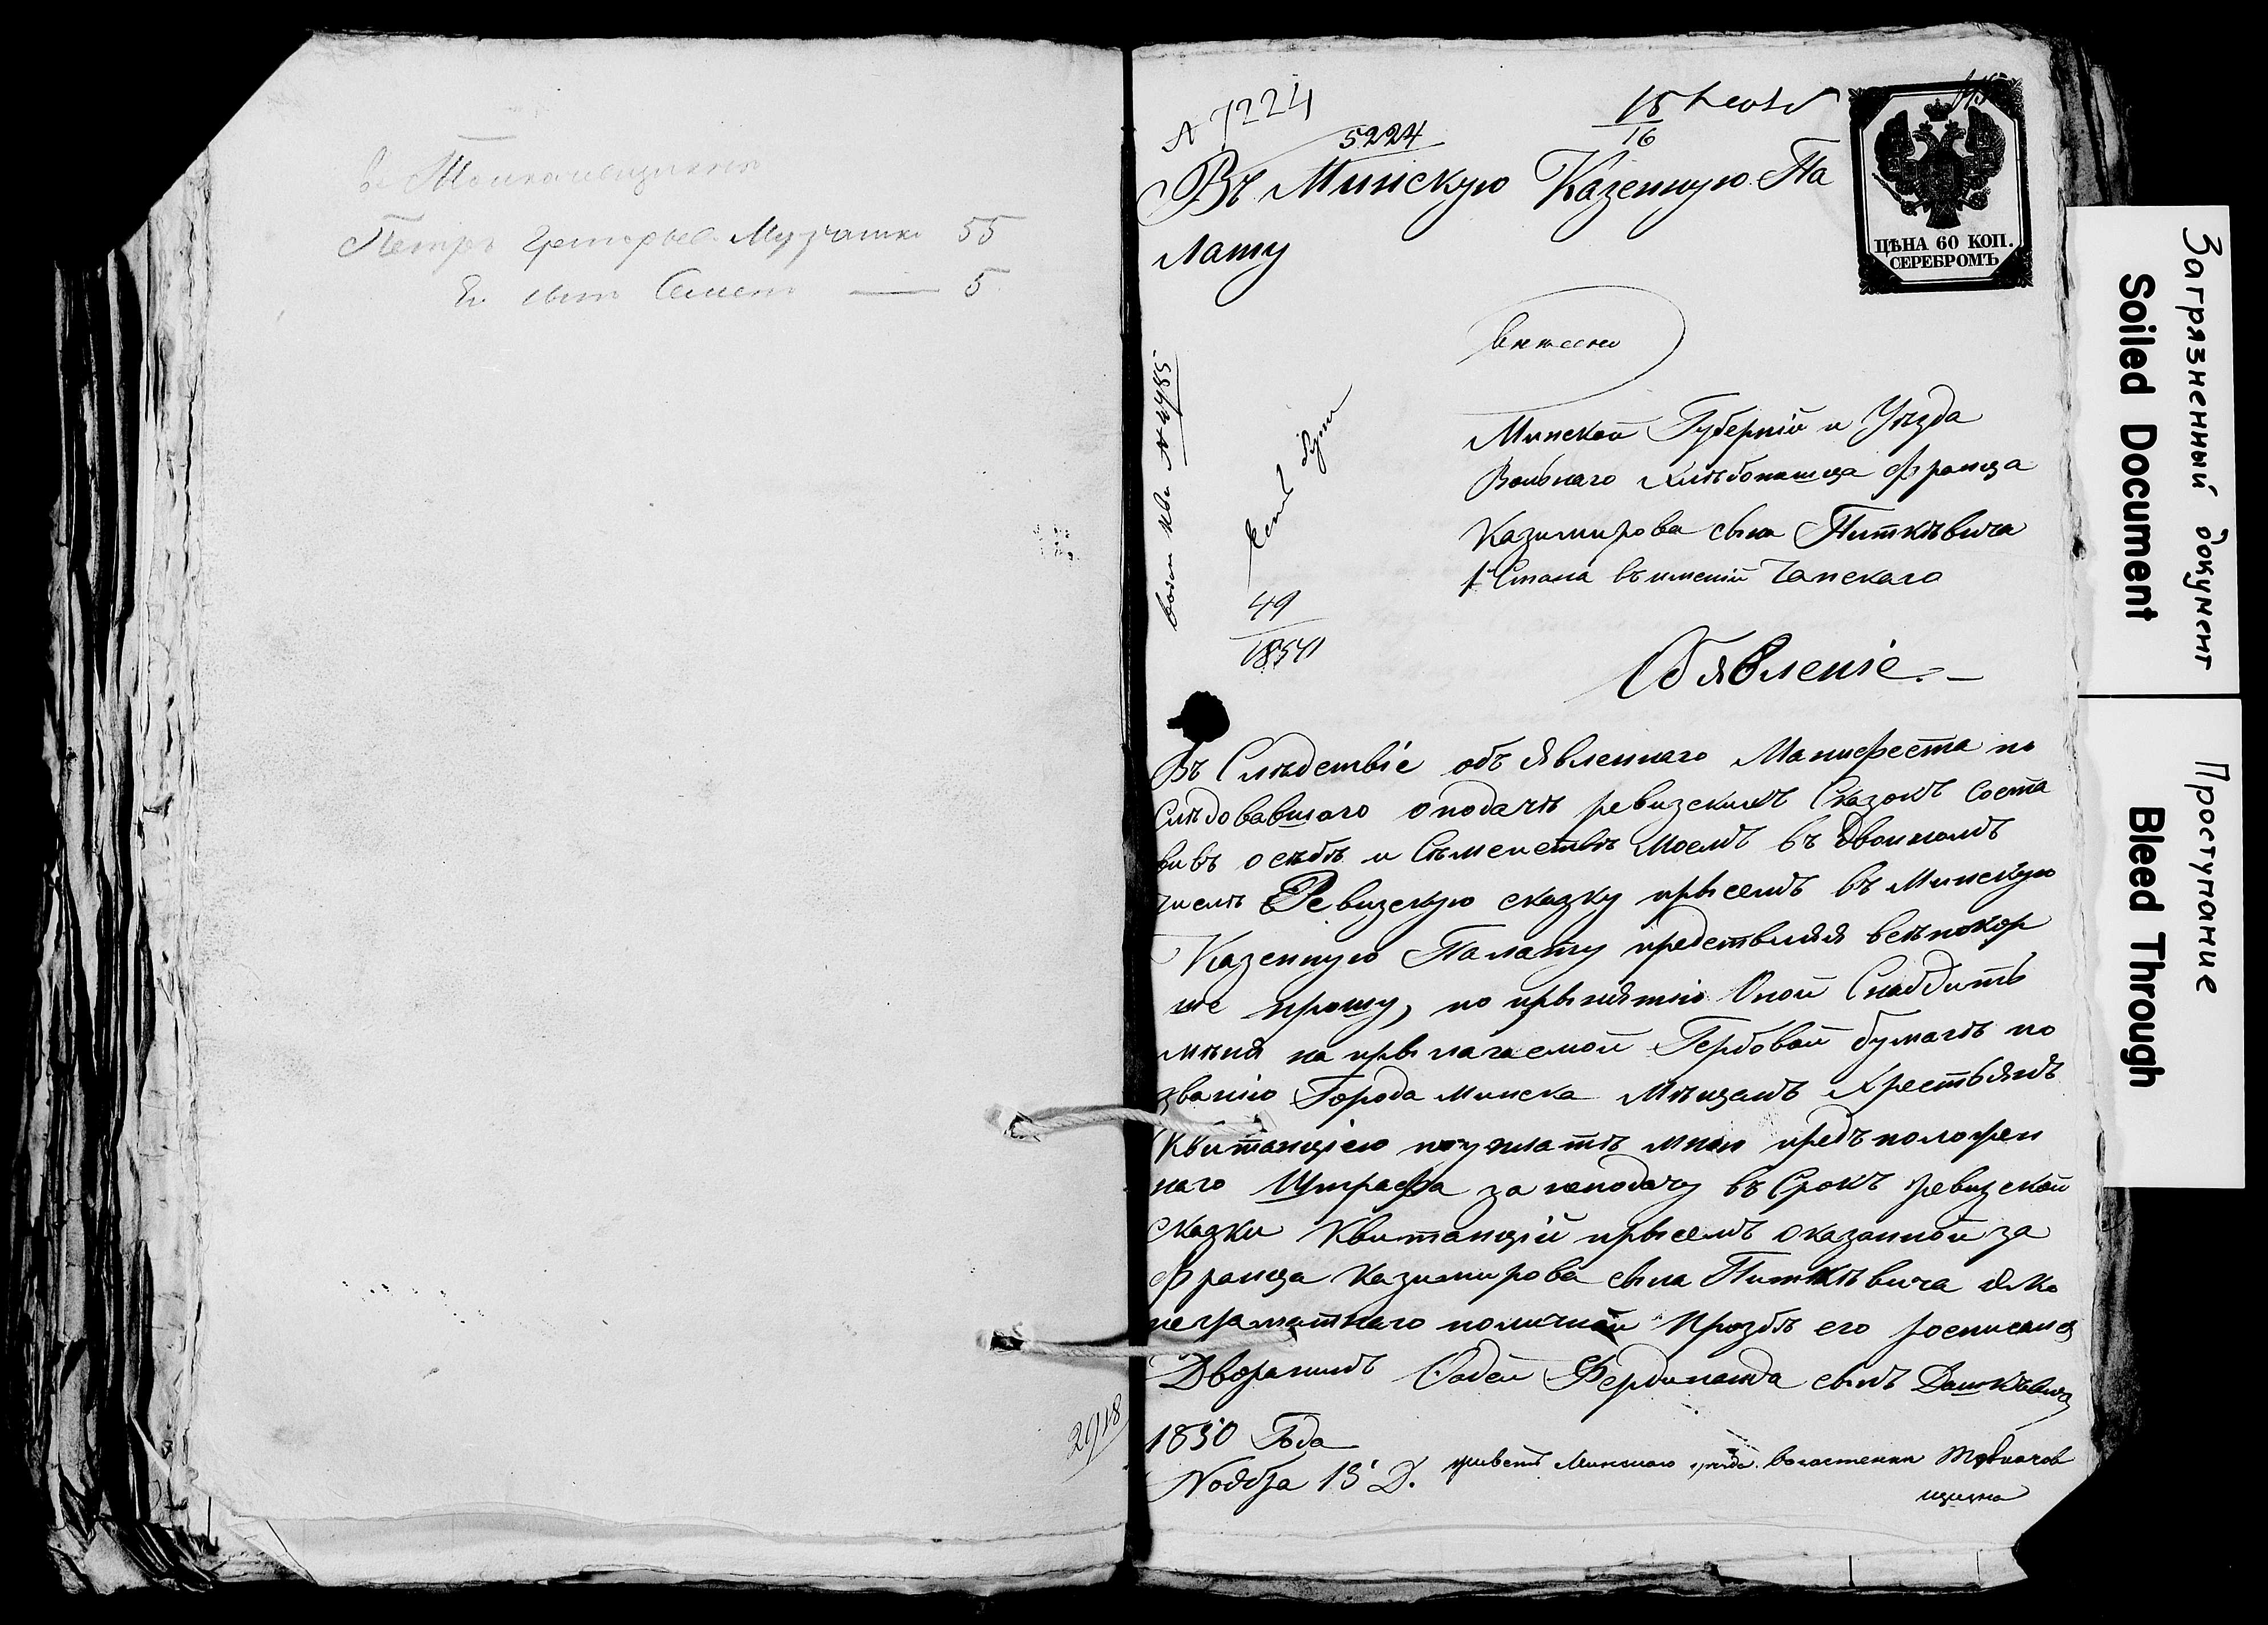 Петръ Григорьев Музчатко 55
Ег сынъ Семенъ — 5
2918
№ 7224
5224
15
16
Въ Минскую Казенную Па
лату
ЦѢНА 60 КОП.
СЕРЕБРОМЪ
внесено
№ 4985
49
Минской Губерніи и Уѣзда
Вольнаго хлѣбопашца Франца
Казимирова сына Питкѣвича
1 Стана въ имѣніи Чапскаго
Объявленіе.
Въ Слѣдствіе объявленнаго Манифеста по
слѣдовавшаго о подачѣ ревизскихъ Сказокъ соста
вивъ о себѣ и Сѣмействѣ моемъ въ двойномъ
числѣ Ревизскую сказку прысемъ въ Минскую
Казенную Палату предствляя всѣпокор
ше прошу, по прынятію Оной Снабдить
мѣня на прылагаемой Гербовой бумагѣ по
званію Города Минска Мѣщанъ Хрестьянъ
Квитанціею по уплатѣ мною предъположен
наго Штрафа за неподачу въ Срокъ ревизской
сказки Квитанціи прысемъ оказанной за
Франца Казимирова сына Питкѣвича яко
неграматнаго поличной прозбѣ его росписался
Дворанинъ Фердинанда сынъ Дашкѣвичъ
1850 Года
Ноября 15 Д.
жыветъ Минскаго уѣзда
щызна
Загрязненный документ
Soiled Document
Проступание
Bleed Through